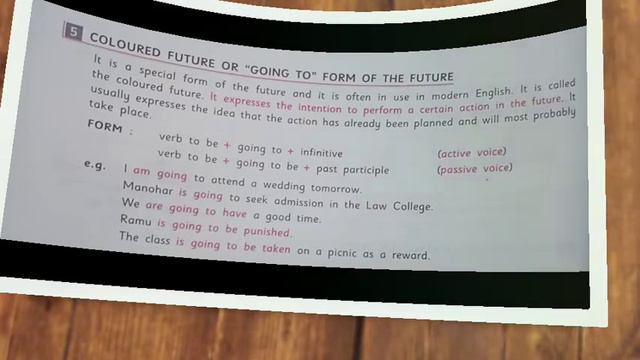 5 COLOURED FUTURE OR "GOING TO" FORM OF THE FUTURE
It is a special form of the future and it is often in use in modern English. It is called
the coloured future. It expresses the intention to perform a certain action in the future. It
usually expresses the idea that the action has already been planned and will most probably
take place.
FORM : verb to be + going to + infinitive (active voice)
verb to be + going to be + past participle (passive voice)
e.g. I am going to attend a wedding tomorrow.
Manohar is going to seek admission in the Law College.
We are going to have a good time.
Ramu is going to be punished.
The class is going to be taken on a picnic as a reward.